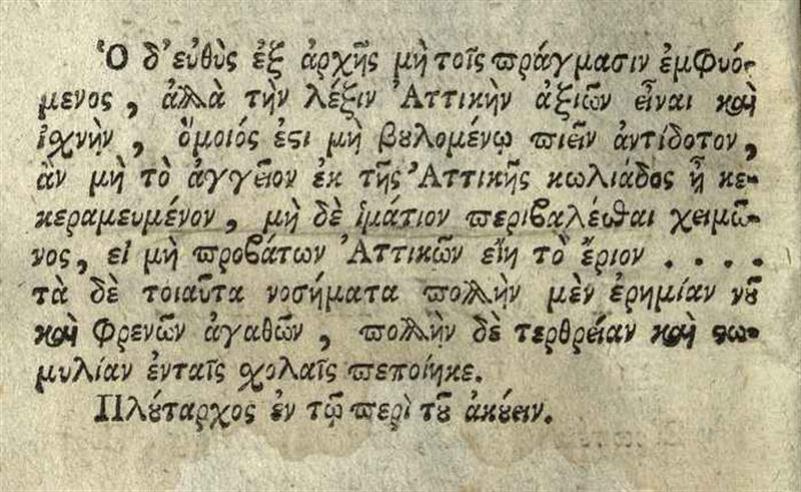 Ὁ δ' εὐθὺς ἐξ ἀρχῆς μὴ τοῖς πράγμασιν ἐμφυό-
μενος, ἀλλὰ τὴν λέξιν Ἀττικὴν ἀξιῶν εἶναι καὶ
ἰσχνὴν, ὅμοιός ἐστι μὴ βουλομένῳ πιεῖν ἀντίδοτον,
ἂν μὴ τὸ ἀγγεῖον ἐκ τῆς Ἀττικῆς κωλιάδος ᾖ κε-
κεραμευμένον, μὴ δὲ ἱμάτιον περιβαλέσθαι χειμῶ-
νος, εἰ μὴ προβάτων Ἀττικῶν εἴη τὸ ἔριον . . . .
τὰ δὲ τοιαῦτα νοσήματα πολλὴν μὲν ἐρημίαν νοῦ
καὶ φρενῶν ἀγαθῶν, πολλὴν δὲ τερθρείαν καὶ στω-
μυλίαν ἐνταῖς σχολαῖς πεποίηκε.
Πλούταρχος ἐν τῷ περὶ τοῦ ἀκούειν.